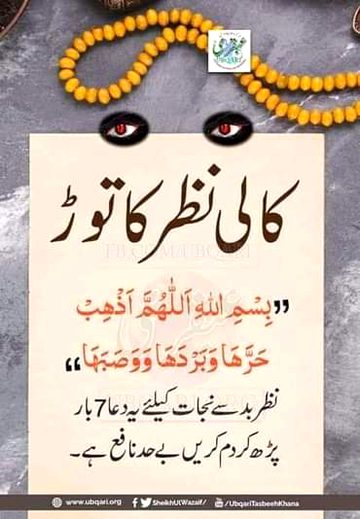 کالی نظر کا توڑ
FB.COM/UBQARI
”بِسْمِ اللهِ اَللّٰهُمَّ اَذْهِبْ
حَرَّهَا وَبَرْدَهَا وَوَصَبَهَا“
نظر بد سے نجات کیلئے یہ دعا 7 بار
پڑھ کر دم کریں بے حد نافع ہے۔
www.ubqari.org f/SheikhUlWazaif/ /UbqariTasbeehKhana